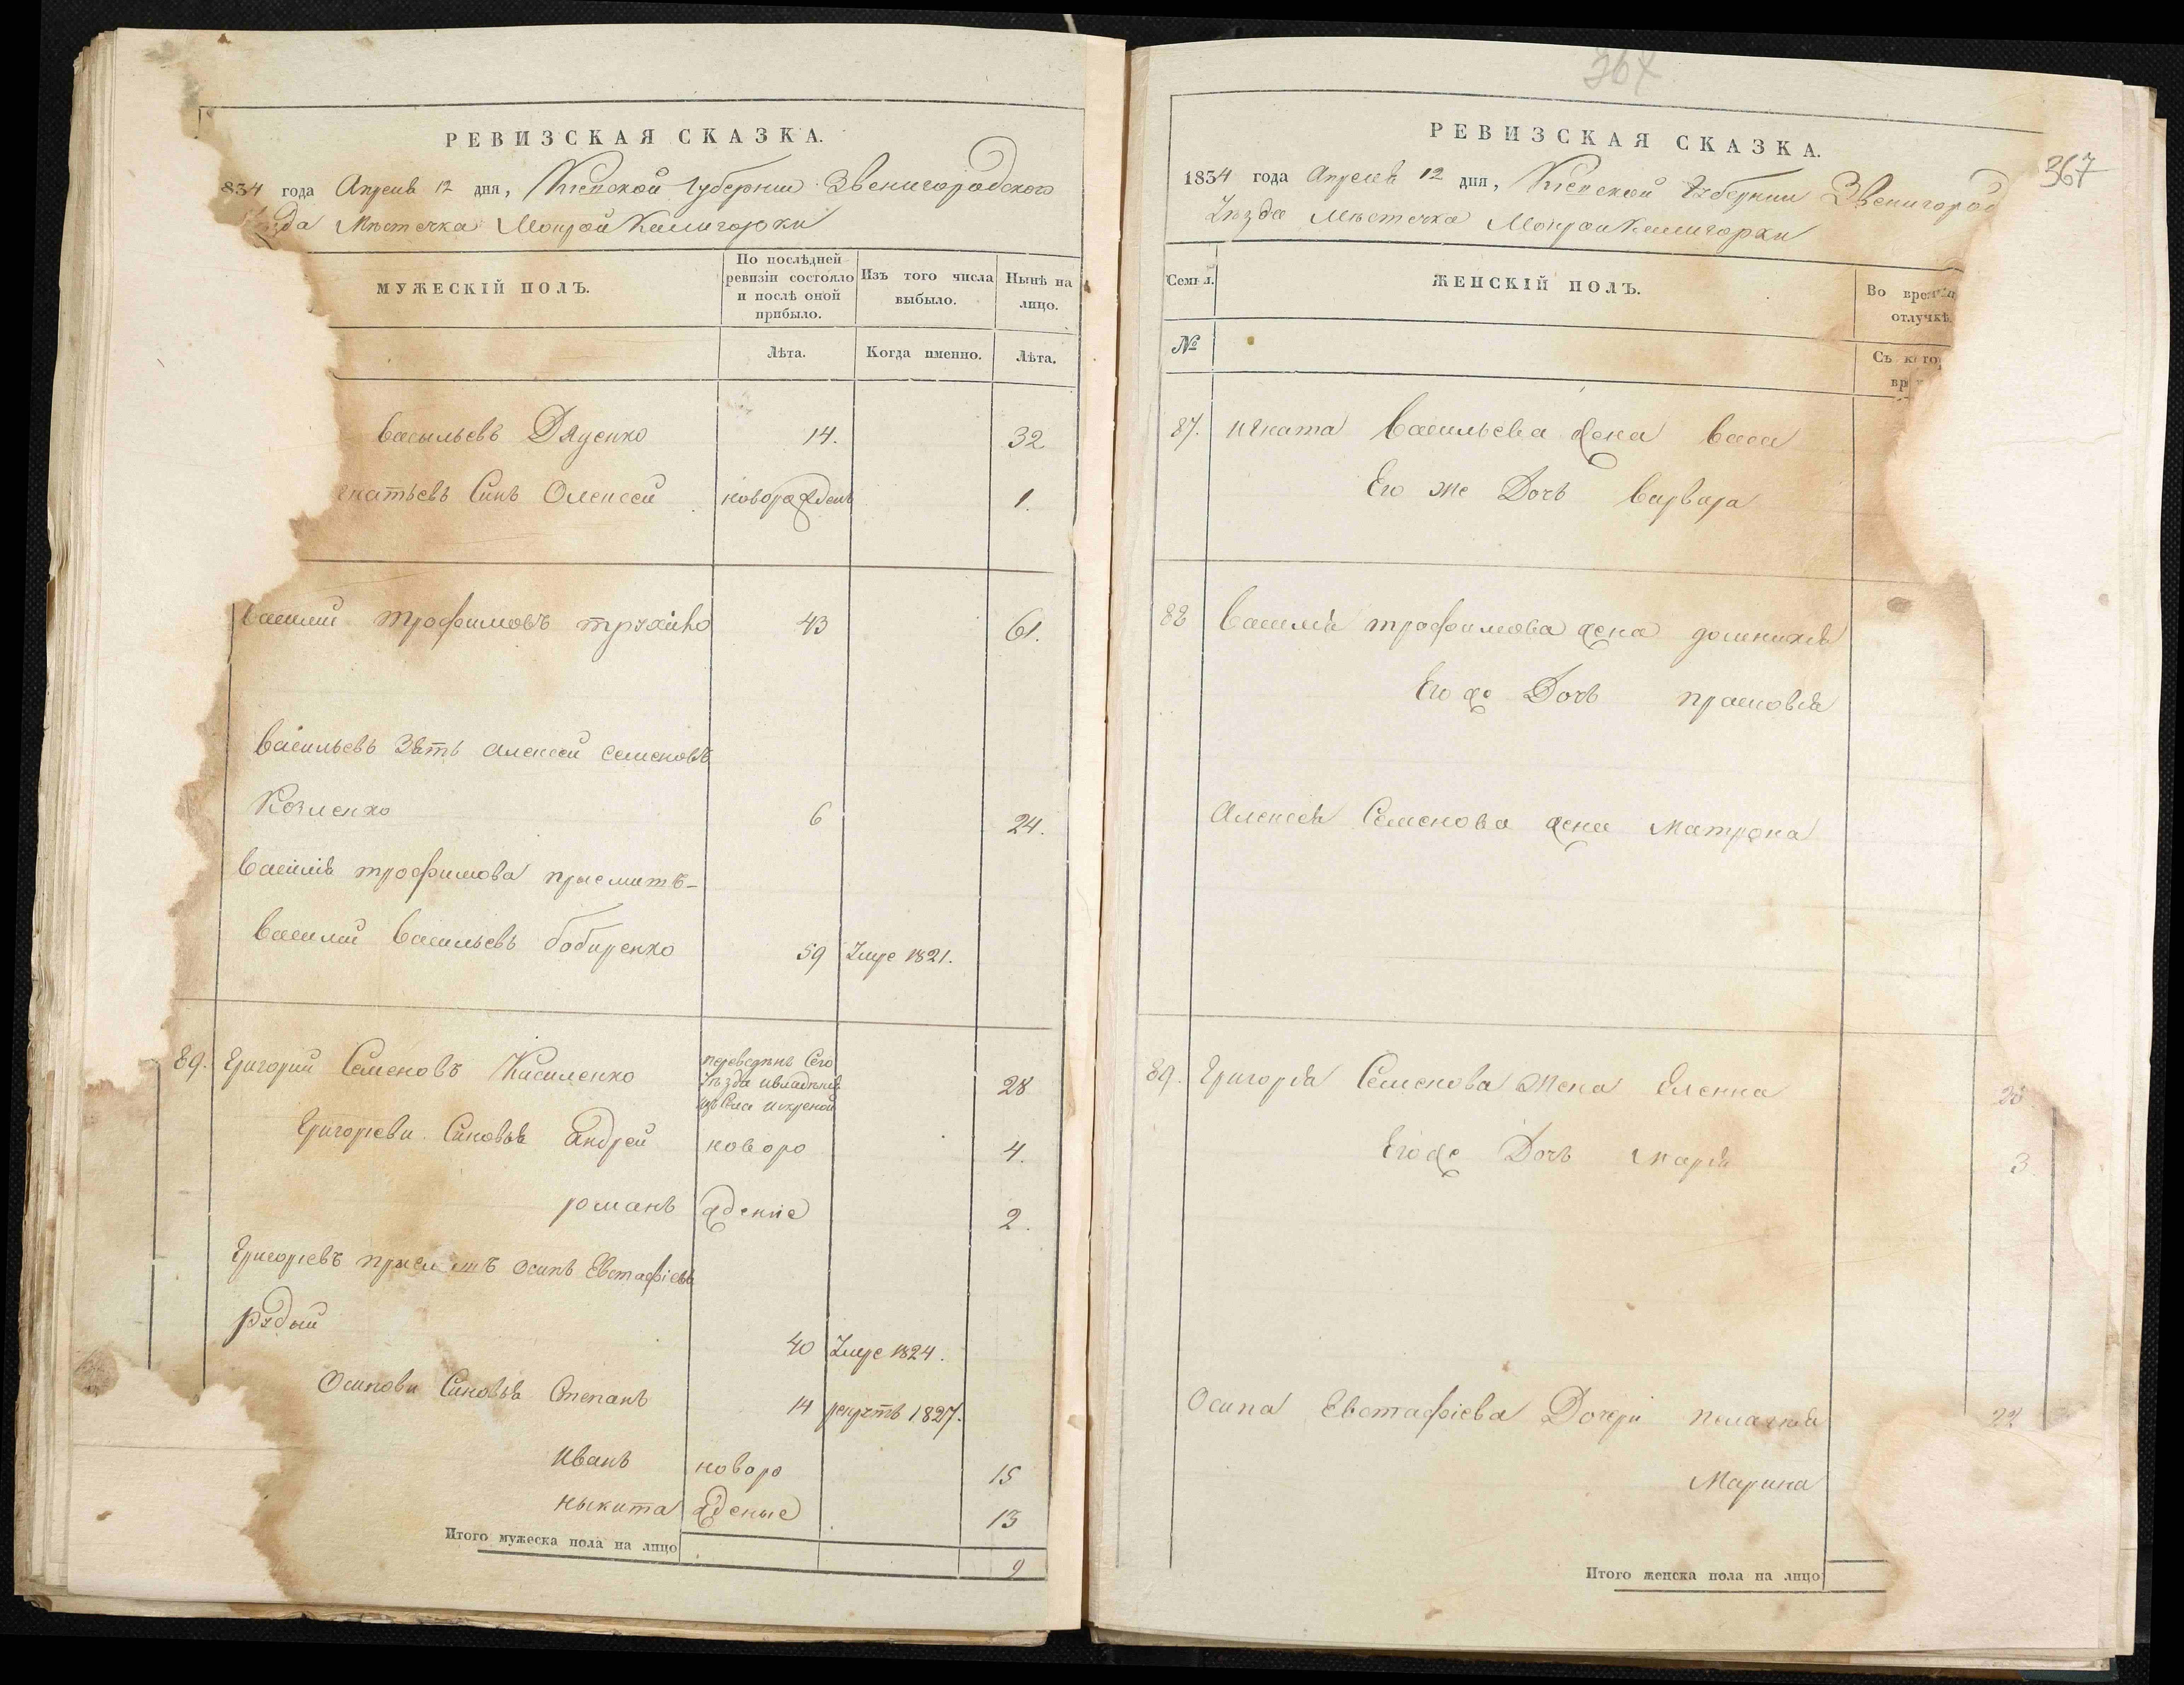 РЕВИЗСКАЯ СКАЗКА.
834 года Апреля 12 дня, Кіевской Губерніи Звенигородского
Уезда Мѣстечка Мокрой Калигорки
МУЖЕСКІЙ ПОЛЪ.
По послѣдней ревизіи состояло и послѣ оной прибыло.
Изъ того числа выбыло.
Нынѣ на лицо.
Лѣта.
Когда именно.
Лѣта.
Васильевъ Дяченко 14. 32
гнатьевъ Синъ Олексей новорожденъ 1.
Василий Трофимовъ 43 61.
Васильевъ Зять Алексей Семеновъ
Козленко 6 24.
Василія Трофимова приемитъ-
Василий Васильевъ Бобиренко 59 Умре 1821.
89. Григорий Семеновъ Кисиленко переведенъ Сего Уезда изъ Села Искреной 28
Григориеви Синовья Андрей новоро 4.
романъ жденніе 2.
Григориевъ приемитъ Осипъ Евстафіевъ
рудый 40 Умре 1824.
Осипови Синовья Степанъ 14 рекрутъ 1827.
Иванъ новоро 15
Никита жденые 13
Итого мужеска пола на лицо 9
367
367
РЕВИЗСКАЯ СКАЗКА.
1834 года Апреля 12 дня, Кіевской Губерніи Звенигород
Уезда Мѣстечка Мокрой Калигорки
Семьи.
ЖЕНСКІЙ ПОЛЪ.
Во времен отлучкѣ.
№
Съ котор вр
87. Игната Васильева жена Васа
Его же Дочь Варвара
88 Василія трофимова жена домникія
Его же Дочь прасковія
Алексея Семенова жена Матрона
89. Григорія Семенова Жена Еленна 26
Его же Дочь Марія 3
Осипа Евстафіева Дочери пелагия 22
Марина
Итого женска пола на лицо